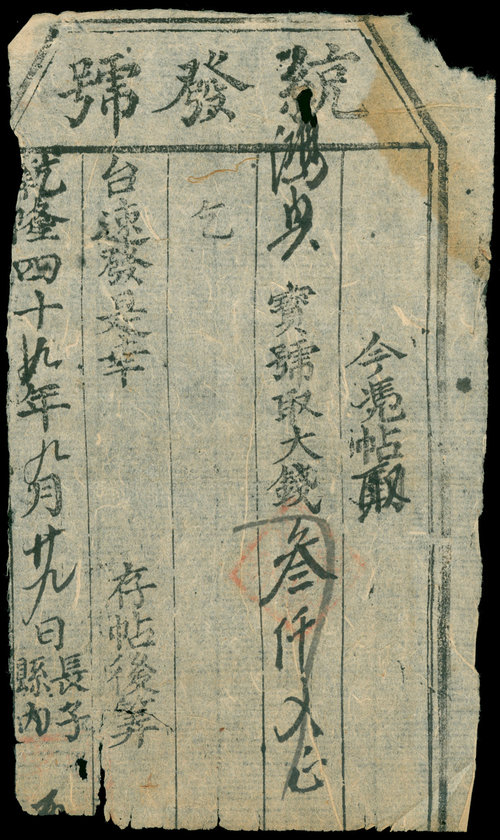 統發號
今憑帖取
鴻興 寶號取大錢叁仟文正
乞
台速發是幸 存帖後筭
乾隆四十九年九月廿九日長子縣內